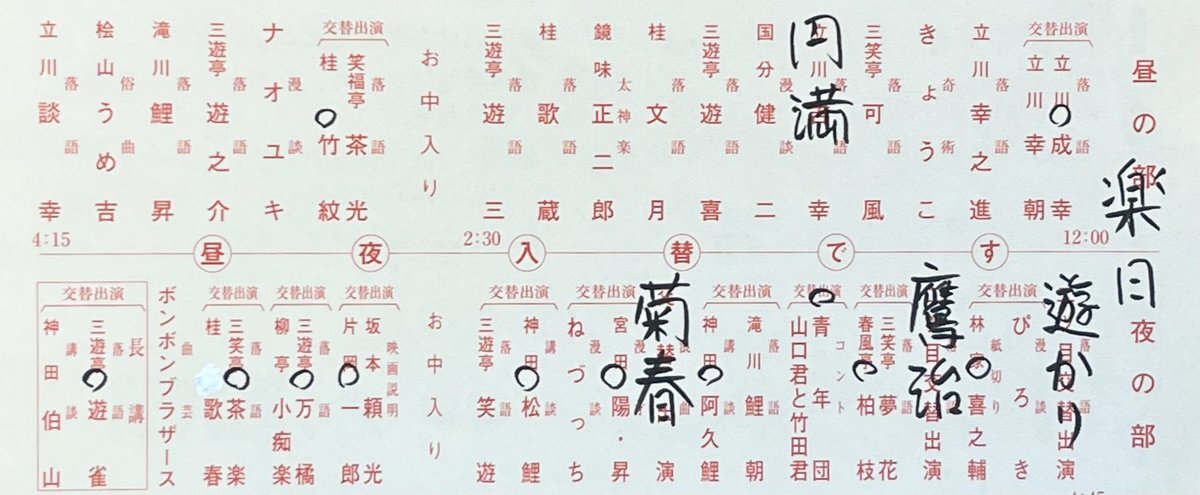 昼の部
楽日
交替出演
落語 立川成幸
立川幸朝
落語 立川幸之進
奇術 きょうこ
落語 三笑亭可風
円満
漫談 国分健二
落語 三遊亭遊喜
落語 桂文月
太神楽 鏡味正二郎
落語 桂歌蔵
落語 三遊亭遊三
お中入り
交替出演
落語 笑福亭茶光
桂竹紋
漫談 ナオユキ
落語 三遊亭遊之介
落語 滝川鯉昇
俗曲 桧山うめ吉
落語 立川談幸
12:00
2:30
4:15
昼夜入替です
夜の部
遊かり
漫談 ぴろき
交替出演
紙切り 林家喜之輔
鷹治
交替出演
落語 三笑亭夢花
春風亭柏枝
交替出演
コント 青年団
山口君と竹田君
落語 滝川鯉朝
交替出演
講談 神田阿久鯉
菊春
交替出演
宮田陽・昇
漫談 ねづっち
交替出演
講談 神田松鯉
落語 三遊亭笑遊
お中入り
交替出演
映画説明 坂本頼光
片岡一郎
交替出演
落語 三遊亭万橘
柳亭小痴楽
交替出演
落語 三笑亭茶楽
桂歌春
曲芸 ボンボンブラザース
交替出演
長講
落語 三遊亭遊雀
講談 神田伯山